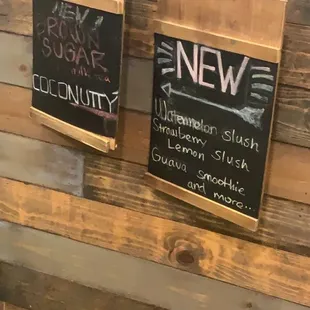 NEW
BROWN
SUGAR
COCONUTTY
NEW
Watermelon slush
Strawberry
Lemon slush
Guava smoothie
and more..